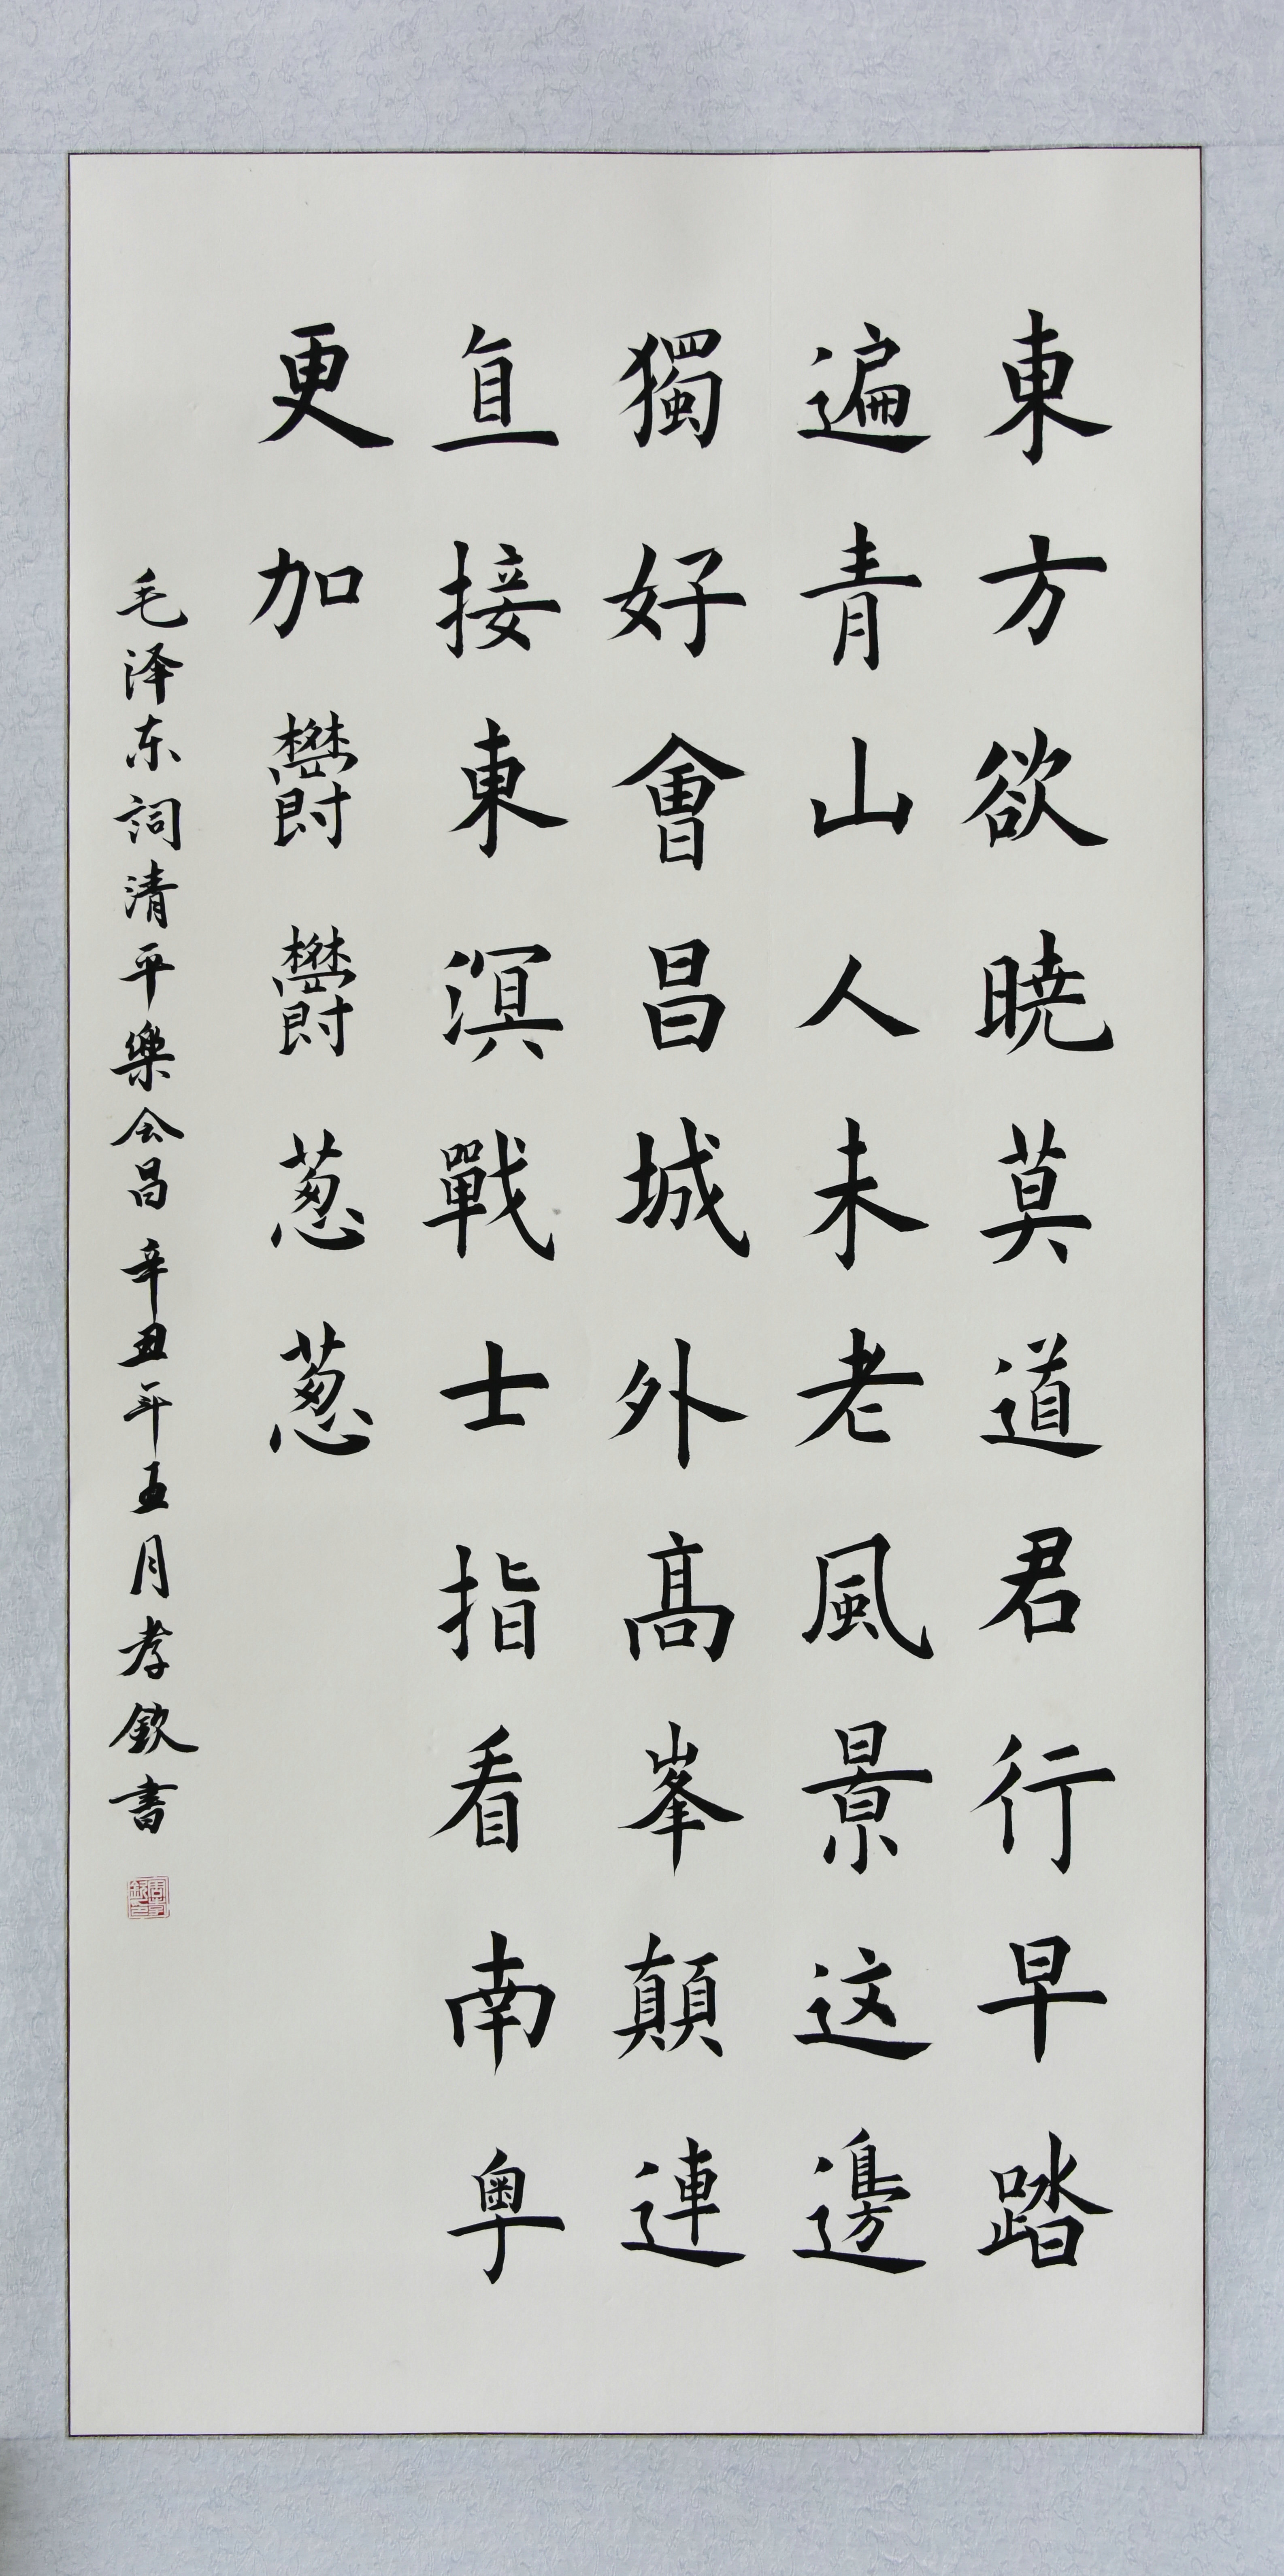 東方欲曉莫道君行早踏
遍青山人未老風景这邊
獨好會昌城外高峯顛連
直接東溟戰士指看南粤
更加鬱鬱葱葱
毛泽东詞清平樂会昌 辛丑年五月孝欽書